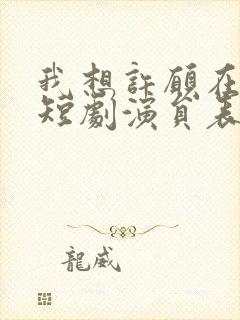 我想許願在
短劇演員表
龍威